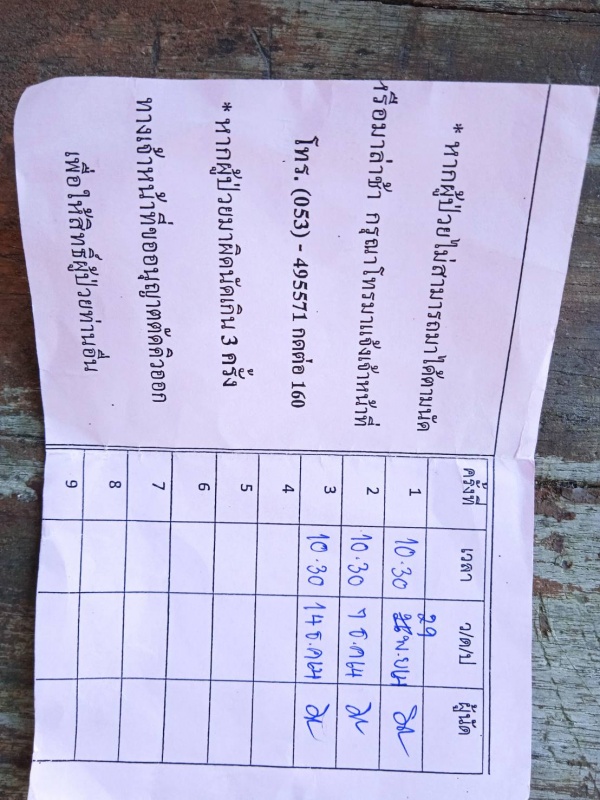 * หากผู้ป่วยไม่สามารถมาได้ตามนัด
หรือมาล่าช้า กรุณาโทรมาแจ้งเจ้าหน้าที่
โทร. (053) - 495571 กดต่อ 160
* หากผู้ป่วยมาผิดนัดเกิน 3 ครั้ง
ทางเจ้าหน้าที่ขออนุญาตตัดคิวออก
เพื่อให้สิทธิ์ผู้ป่วยท่านอื่น
ครั้งที่ เวลา ว/ด/ป ผู้นัด
1 10.30 29 พ.ย
2 10.30 7 ธ.ค
3 10.30 14 ธ.ค
4
5
6
7
8
9